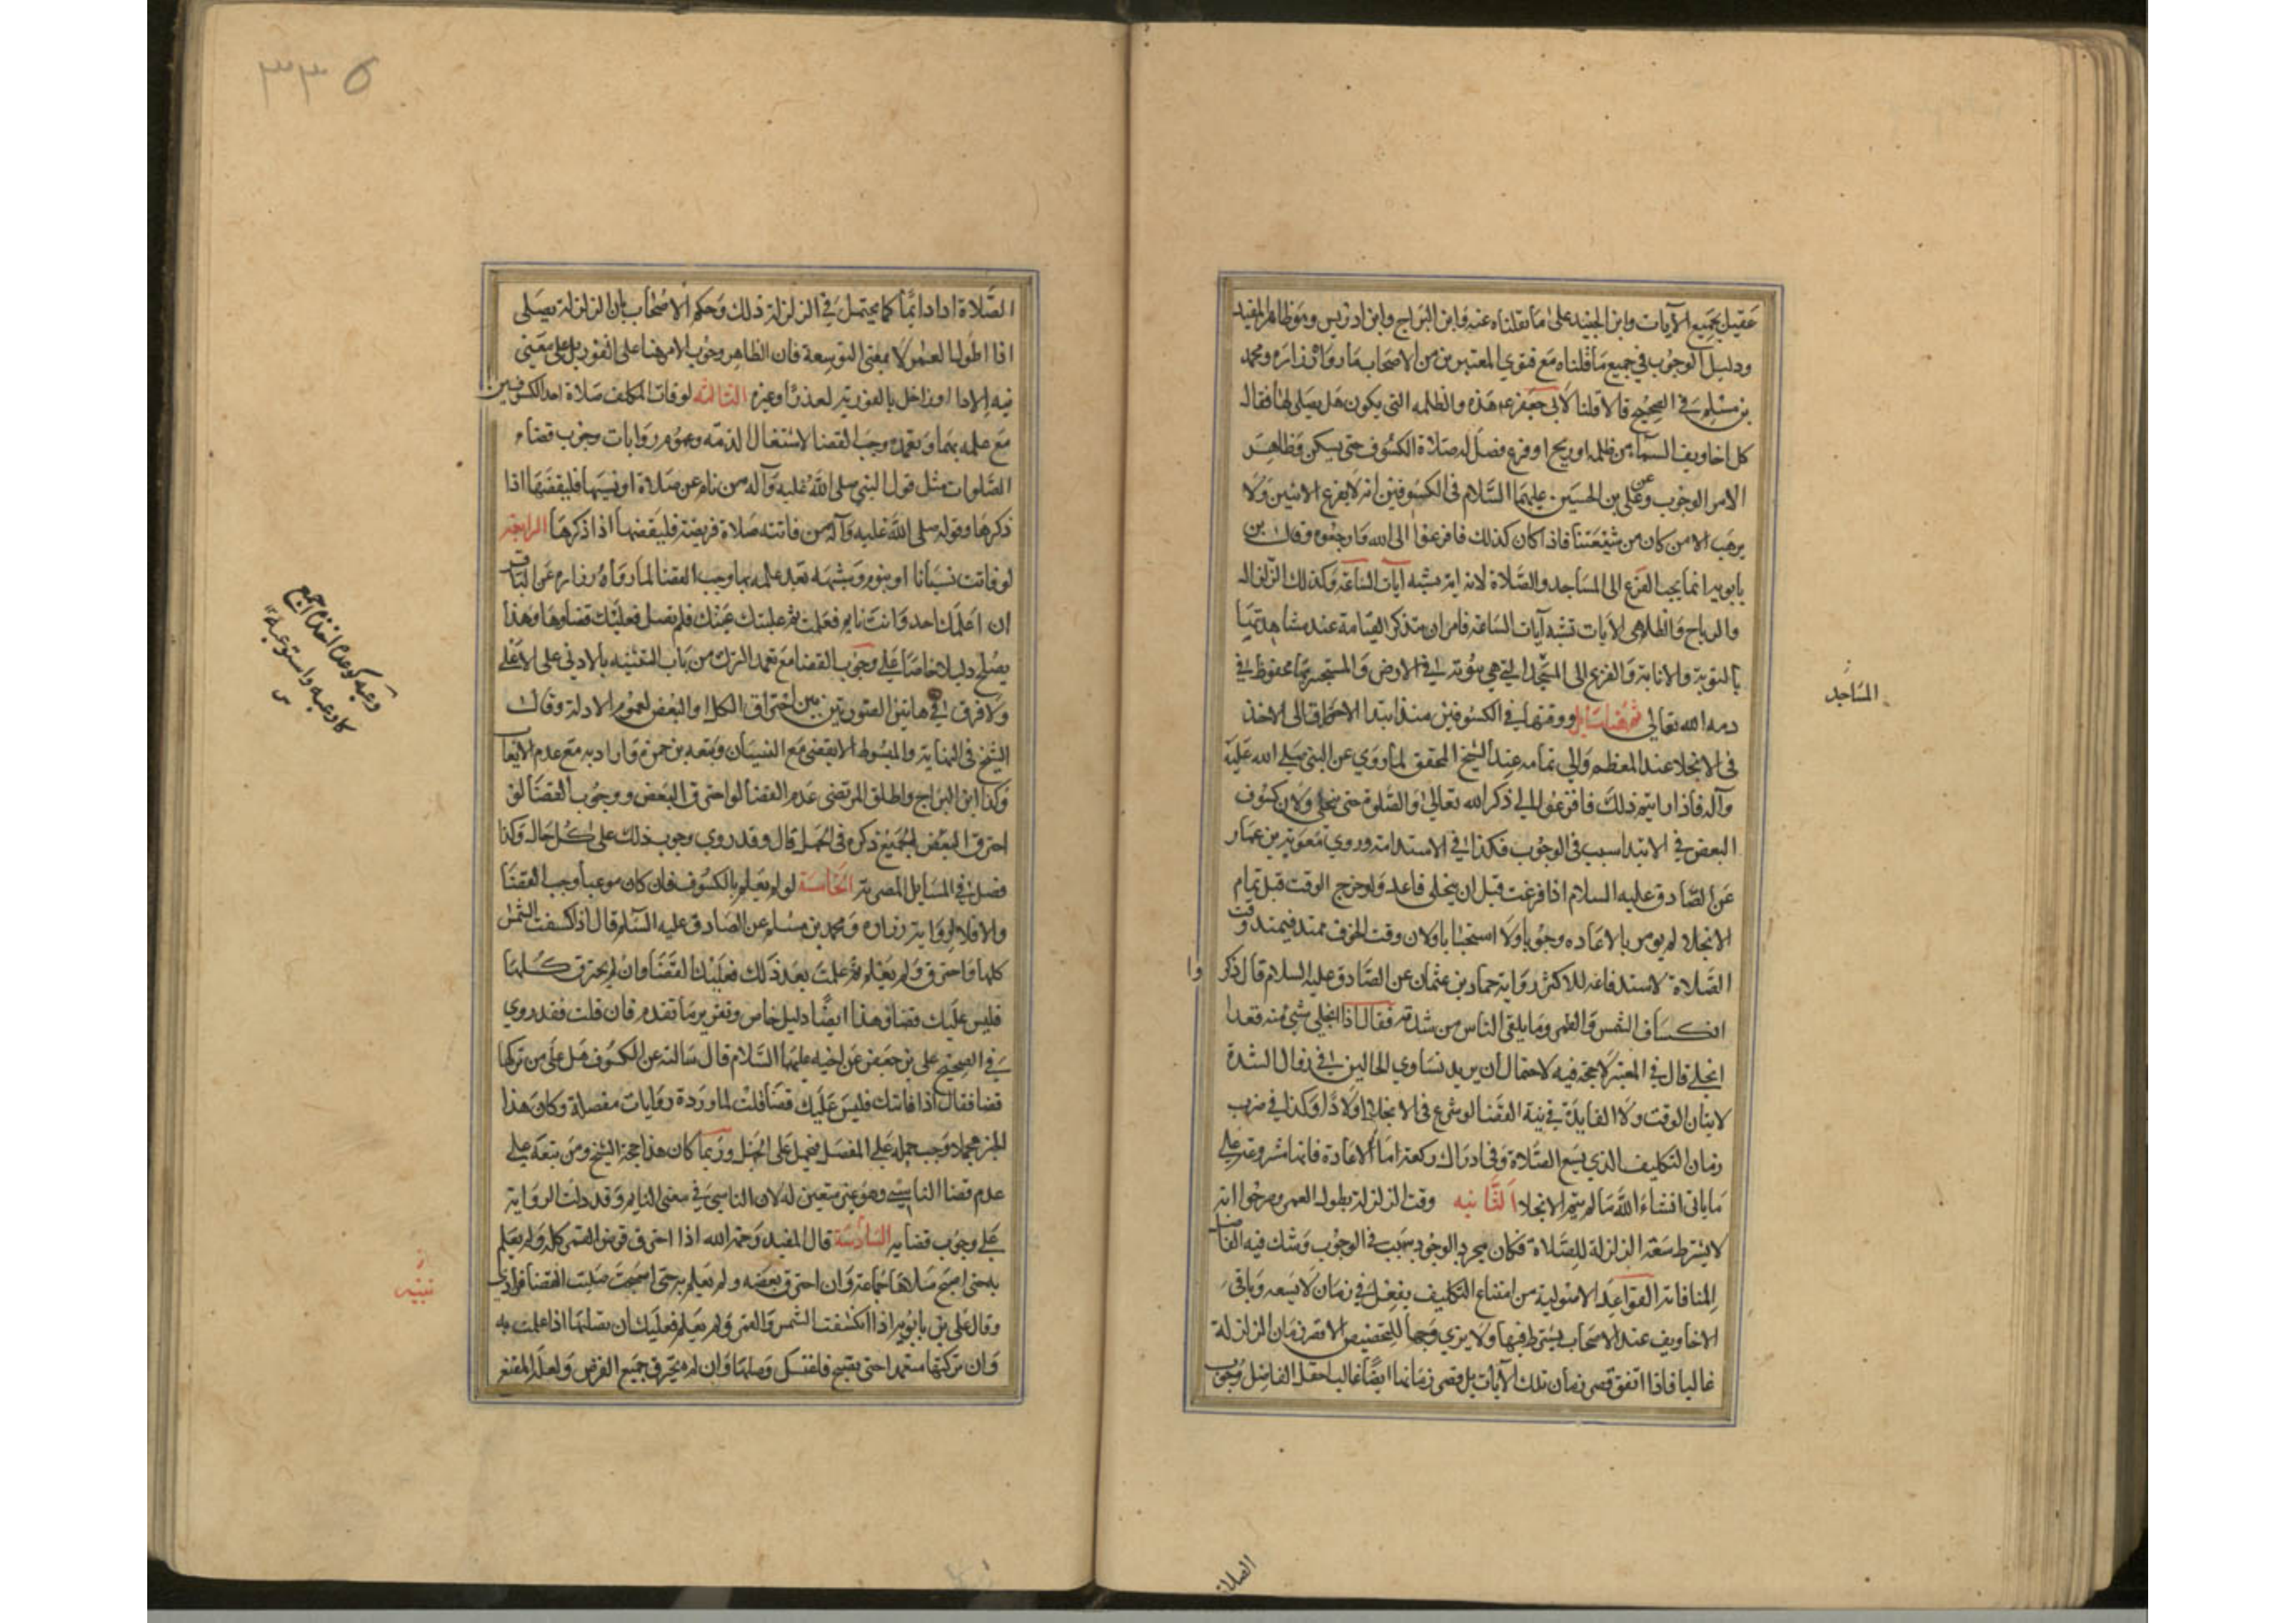 عقيل بجميع الآيات وابن الجنيد على ما نقلناه عنه وابن البراج وابن ادريس وهو ظاهر المفيد
ودليل الوجوب في جميع ما قلناه مع فتوي المعتبرين من الاصحاب ما رواه زرارة ومحمد
بن مسلم في الصحيح قالا قلنا لابي جعفر ع هذه والظلمه التي يكون هل يصلى لها فقال
كل اخاويف السماء من ظلمه او ريح او فزع فصل له صلاة الكسوف حتى يسكن وظاهر
الامر الوجوب وعن علي بن الحسين عليهما السلام في الكسوفين انه لا يفزع الاثنين ولا
يرهب الا من كان من شيعتنا فاذا كان كذلك فافزعوا الى الله وارجعوه وقال بن
بابويه انما يجب الفزع الى المساجد والصلاة لانه اية يشبه آيات الساعة وكذلك الزلزال
والرياح والظلم هي الآيات تشبه آيات الساعة فامر ان يتذكر القيامة عند مشاهدتها
بالتوبة والانابة والفزع الى المسجد التي هي بيوته في الارض والمستجير بها محفوظ في
ذمه الله تعالى ثم هنا مسائل ا ووقتها في الكسوفين منذ ابتدا الاحتراق الى الاخذ
في الانجلا عند المعظم والى تمامه عند الشيخ المحقق لما روي عن النبي صلى الله عليه
وآله فاذا رايتم ذلك فافزعوا الى ذكر الله تعالى او الصلوة حتى ينجلي ولان كسوف
البعض في الابتدا سبب في الوجوب فكذا في الاستدامة وروي معوية بن عمار
عن الصادق عليه السلام اذا فرغت قبل ان ينجلى فاعد ولو خرج الوقت قبل تمام
الانجلا لم يومر بالاعاده وجوبا ولا استحبابا ولان وقت الخوف ممتد فيمتد وقت
الصلاة لاستدفاعه للاكثر رواية حماد بن عثمان عن الصادق عليه السلام قال ذكر
انكساف الشمس والقمر وما يلقى الناس من شدته فقال اذا انجلى شيء منه فقد
انجلى قال في المعتبر لا حجة فيه لاحتمال ان يريد تساوي الحالين في زوال الشدة
لا بيان الوقت ولا الفايدة في نية القضا لو شرع في الانجلا اولا ذا وكذا في ضرب
زمان التكليف الذي يسع الصلاة وفي ادراك ركعة اما الاعادة فانها مشروعة على
ما ياتى انشاء الله ما لم يتم الانجلا الثانيه وقت الزلزلة بطول العمر وصرحوا انه
لا يشترط سعة الزلزلة للصلاة فكان مجرد الوجود سبب في الوجوب وشك فيه الفاضل
لمنافاته القواعد الاصولية من امتناع التكليف بفعل في زمان لا يسعه وباقي
الاخاويف عند الاصحاب يشترط فيها ولا يري وجها للتخصيص الا قصر زمان الزلزلة
غالبا فاذا اتفق قصر زمان تلك الآيات بل قصر زمانها ايضا غالبا احتمل الفاضل وجوب
المساجد
وا
الصلاة
٣٣٥
الصلاة اداء دايما كما يحتمل في الزلزلة ذلك وحكم الاصحاب بان الزلزلة يصلى
اذا اطول العمر لا بمعنى التوسعة فان الظاهر وجوب الامر هنا على الفور بل على معنى
نية الادا وان اخل بالفورية لعذر او غيره الثالثة لو فات المكلف صلاة احد الكسوفين
مع علمه بهما وتعمده وجب القضا لاشتغال الذمه وعموم روايات وجوب قضاء
الصلوات مثل قول النبي صلى الله عليه وآله من نام عن صلاة او نسيها فليقضها اذا
ذكرها وقوله صلى الله عليه وآله من فاتته صلاة فريضة فليقضها اذا ذكرها الرابعة
لو فاتت نسيانا او بنوم وشبهه بعد علمه بها وجب القضا لما رواه زراره عن الباقر
ان اعلمك احد وانت نايم فعلمت ثم غلبتك عينك فلم تصل فعليك قضاوها وهذا
يصلح دليلا خاصا على وجوب القضا مع تعمد الترك من باب التنبيه بالادنى على الاعلى
ولا فرق في هاتين الصورتين بين احتراق الكل او البعض لعموم الادلة وقال
الشيخ في النهاية والمبسوط لا يقضى مع النسيان وتبعه بن حمزة وارادبه مع عدم الايعاب
وكذا ابن البراج واطلق المرتضى عدم القضا لو احترق البعض ووجوب القضا لو
احترق البعض الجميع ذكره في الجمل قال وقد روي وجوب ذلك على كل حال وكذا
فصل في المسايل المصرية الخامسة لو لم يعلم بالكسوف فان كان موعبا وجب القضا
والا فلا لرواية زراره ومحمد بن مسلم عن الصادق عليه السلام قال اذا كسفت الشمس
كلها واحترق ولم يعلم ثم علمت بعد ذلك فعليك القضا وان لم يحترق كلها
فليس عليك قضا وهذا ايضا دليل خاص وتقرير ما تقدم فان قلت فقد روي
في الصحيح علي بن جعفر عن اخيه عليهما السلام قال سالته عن الكسوف هل على من تركها
قضا فقال اذا فاتتك فليس عليك قضا قلت لما ورد روايات مفصلة وكان هذا
الخبر مجملا وجب حمله على المفصل فيحمل على الجهل وربما كان هذا حجة الشيخ ومن تبعه على
عدم قضا الناسي وهو غير متعين له لان الناسي في معنى النايم وقد دلت الرواية
على وجوب قضايه السادسة قال المفيد رحمه الله اذا احترق قرص القمر كله ولم يعلم
به حتى اصبح صلاها جماعة وان احترق بعضه ولم تعلم به حتى اصبحت صليت القضا فرادي
وقال علي بن بابويه اذا انكسفت الشمس والقمر ولم يعلم فعليك ان تصليها اذا علمت به
وان تركتها متعمدا حتى تصبح فاغتسل وصلها وان لم يحترق جميع القرص ولعل المقنع
وعبه كوعده اخذه اجمع
كاوعبه واستوعبه
تنبيه